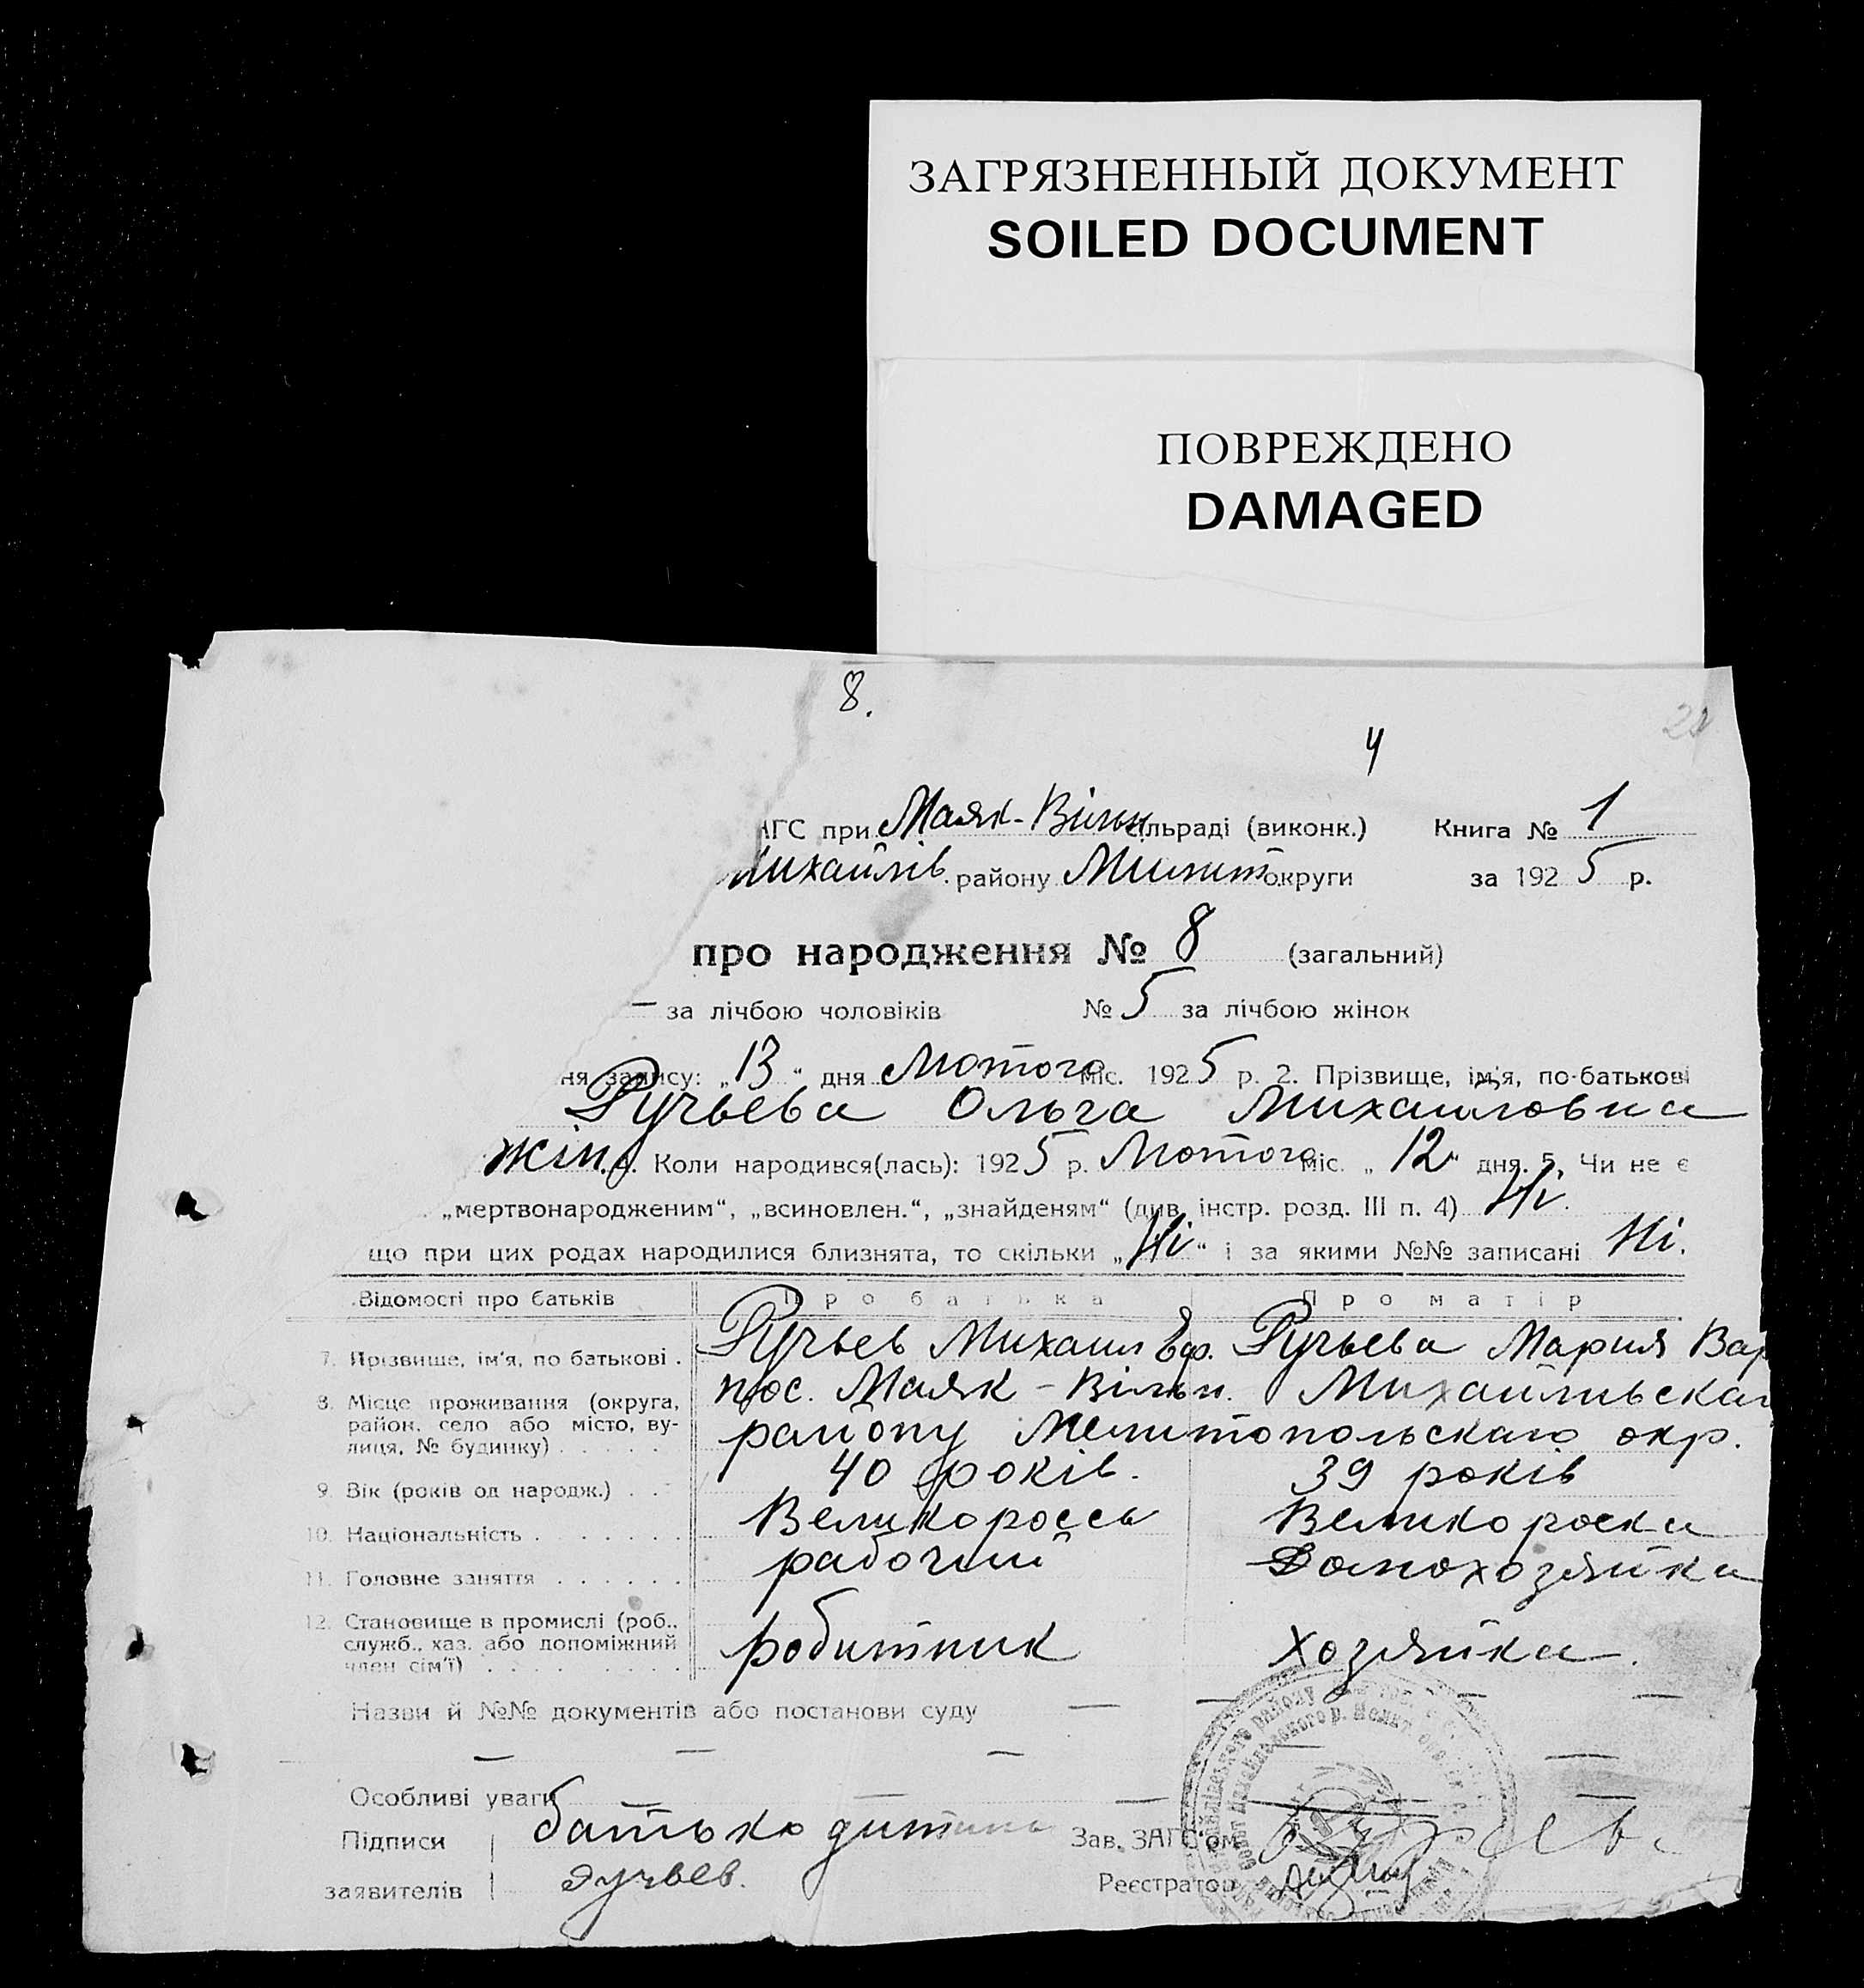 ЗАГРЯЗНЕННЫЙ ДОКУМЕНТ
SOILED DOCUMENT
ПОВРЕЖДЕНО
DAMAGED
8.
4
АГС при Маяк-Вільн сільраді (виконк.) Книга № 1
Михайлів. району Мелит. округи за 1925 р.
про народження № 8 (загальний)
— за лічбою чоловіків № 5 за лічбою жінок
ня запису: „13“ дня Лютого міс. 1925 р. 2. Прізвище, ім'я, по-батькові
Ручьева Ольга Михайловна
жін. Коли народився(лась): 1925 р. Лютого міс. „12“ дня. 5. Чи не є
„мертвонародженим“, „всиновлен.“, „знайденям“ (див. інстр. розд. III п. 4) Ні.
що при цих родах народилися близнята, то скільки „Ні“ і за якими №№ записані Ні.
Відомості про батьків Про батька Про матір
7. Прізвище, ім'я, по батькові . Ручьев Михаил Еф. Ручьева Мария Вар
8. Місце проживання (округа, пос. Маяк-Вільн. Михайлівьскаг
район, село або місто, ву- району Мелитопольскаго окр.
лиця, № будинку) . . . . .
9. Вік (років од народж.) . . . 40 років. 39 років
10. Національність . . . . . . . Великороссъ Великороска
11. Головне заняття . . . . . . рабочий Домохозяйка
12. Становище в промислі (роб.,
служб., хаз. або допоміжний робитник хозяйка.
член сім'ї) . . . . . . . . .
Назви й №№ документів або постанови суду — — — —
— — — — —
Особливі уваги — — —
Підписи батько дитини Зав. ЗАГС'ом
заявителів Ручьев. Реєстратор